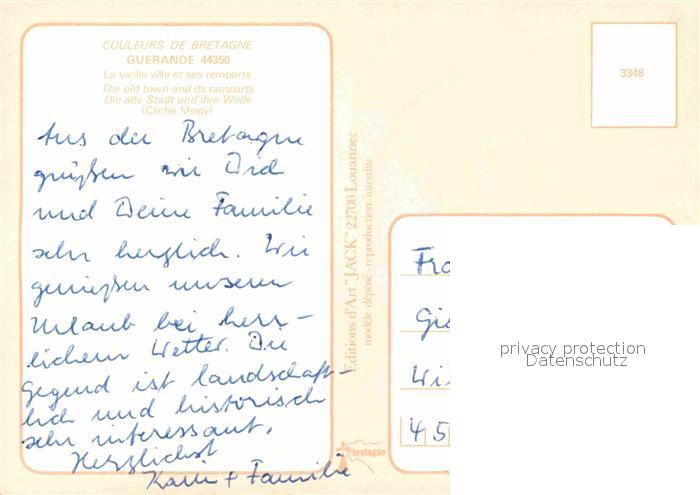 COULEURS DE BRETAGNE
GUERANDE 44350
La vieille ville et ses remparts
The old town and its ramparts
Die alte Stadt und ihre Wälle
(Cliché Mopy)
Aus der Bretagne
grüßen wir Dich
und Deine Familie
sehr herzlich. Wir
genießen unseren
Urlaub bei herr-
lichem Wetter. Die
Gegend ist landschaft-
lich und historisch
sehr interessant.
Herzlichst
Karin + Familie
Editions d'Art "JACK" 22700 Louannec
modèle déposé - reproduction interdite
bretagne
3348
Fra
Gie
Wi
45
privacy protection
Datenschutz